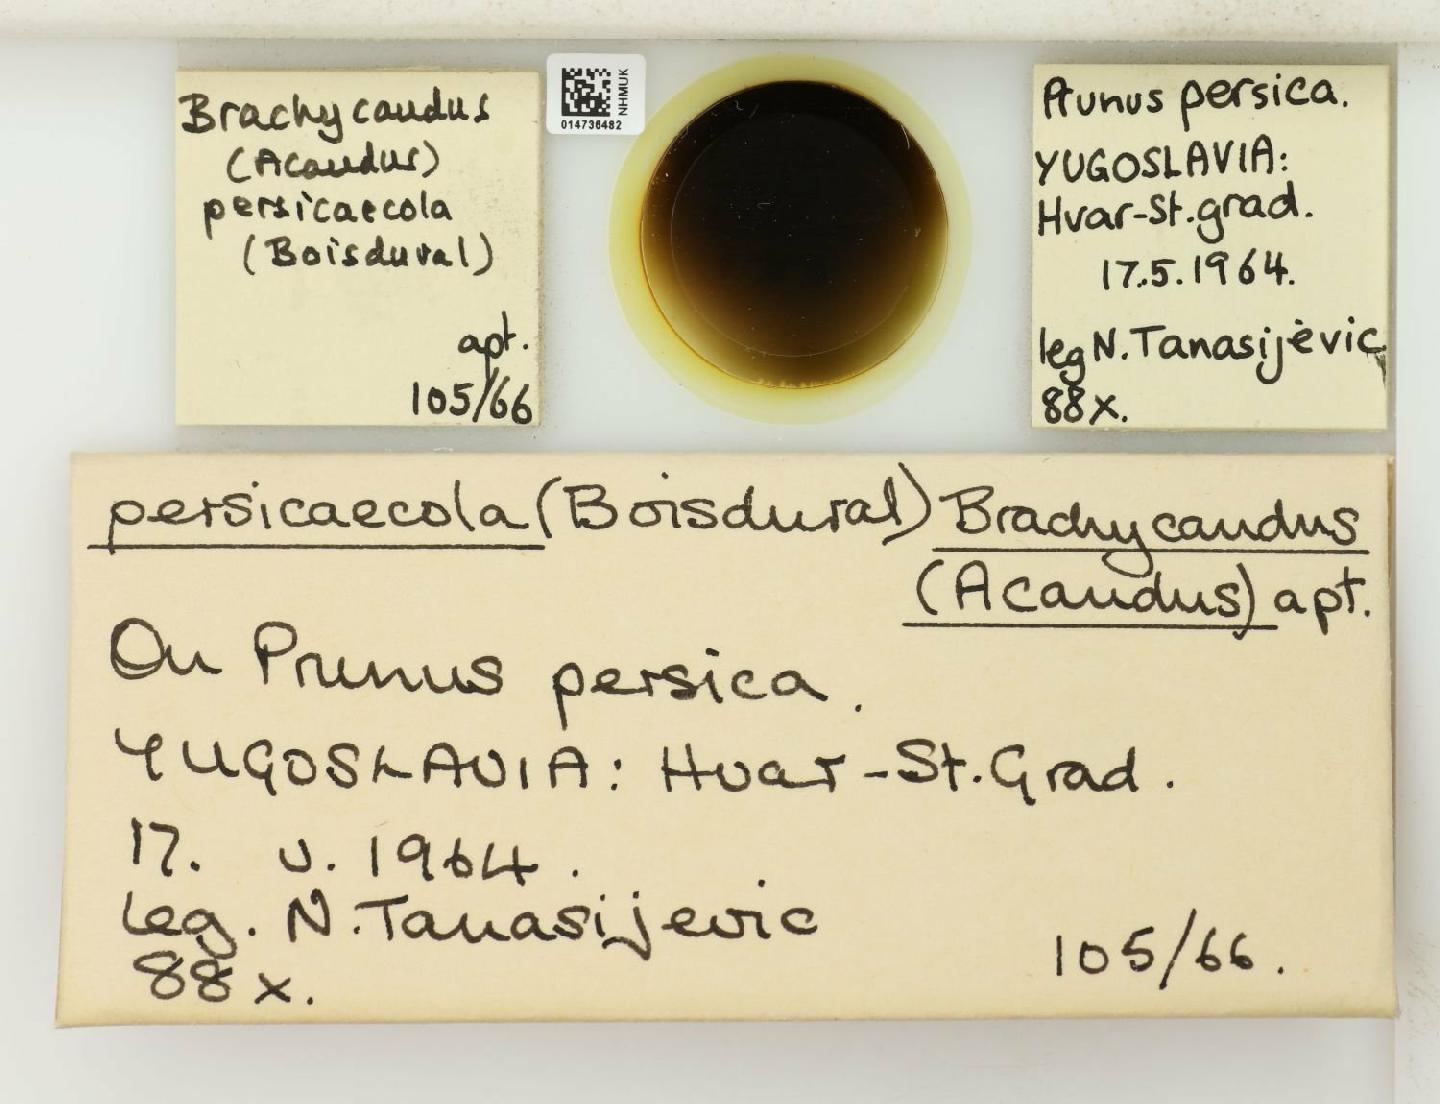 Brachycaudus
(Acaudus)
persicaecola
(Boisduval)
apt.
105/66
NHMUK
014736482
Prunus persica.
YUGOSLAVIA:
Hvar-St.grad.
17.5.1964.
leg N.Tanasijevic
88x.
persicaecola (Boisduval) Brachycaudus
(Acaudus) apt.
On Prunus persica.
YUGOSLAVIA: Hvar-St.Grad.
17. v. 1964.
leg. N.Tanasijevic
88x.
105/66.